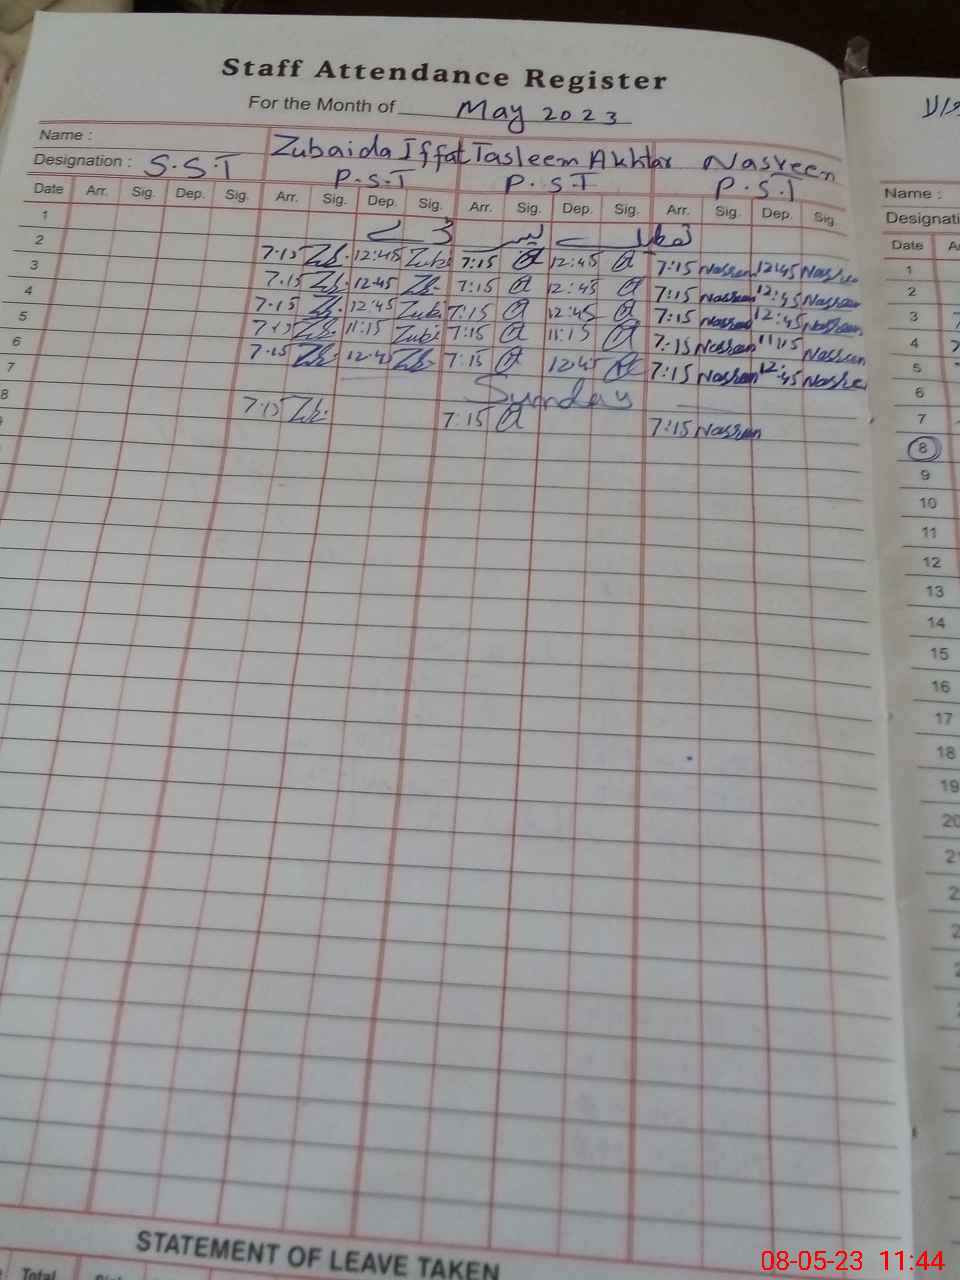 Staff Attendance Register
For the Month of May 2023
Name : Zubaida Iffat Tasleem Akhtar Nasreen
Designation : S.S.T P.S.T P.S.T P.S.T
Date Arr. Sig. Dep. Sig. Arr. Sig. Dep. Sig. Arr. Sig. Dep. Sig. Arr. Sig. Dep. Sig.
1
2 7:15 Zb. 12:45 Zubi 7:15 12:45 7:15 Nasreen 12:45 Nasree
3 7:15 Zb. 12:45 Zb. 7:15 12:45 7:15 Nasreen 12:45 Nasreen
4 7:15 Zb. 12:45 Zubi 7:15 12:45 7:15 Nasreen 12:45 Nasreen
5 7:15 Zb. 11:15 Zubi 7:15 11:15 7:15 Nasreen 11:15 Nasreen
6 7:15 Zb. 12:45 Zb. 7:15 12:45 7:15 Nasreen 12:45 Nasree
7 Sunday
8 7:15 Zb. 7:15 7:15 Nasreen
STATEMENT OF LEAVE TAKEN
Total
Name :
Designati
Date
1
2
3
4
5
6
7
8
9
10
11
12
13
14
15
16
17
18
19
20
08-05-23 11:44